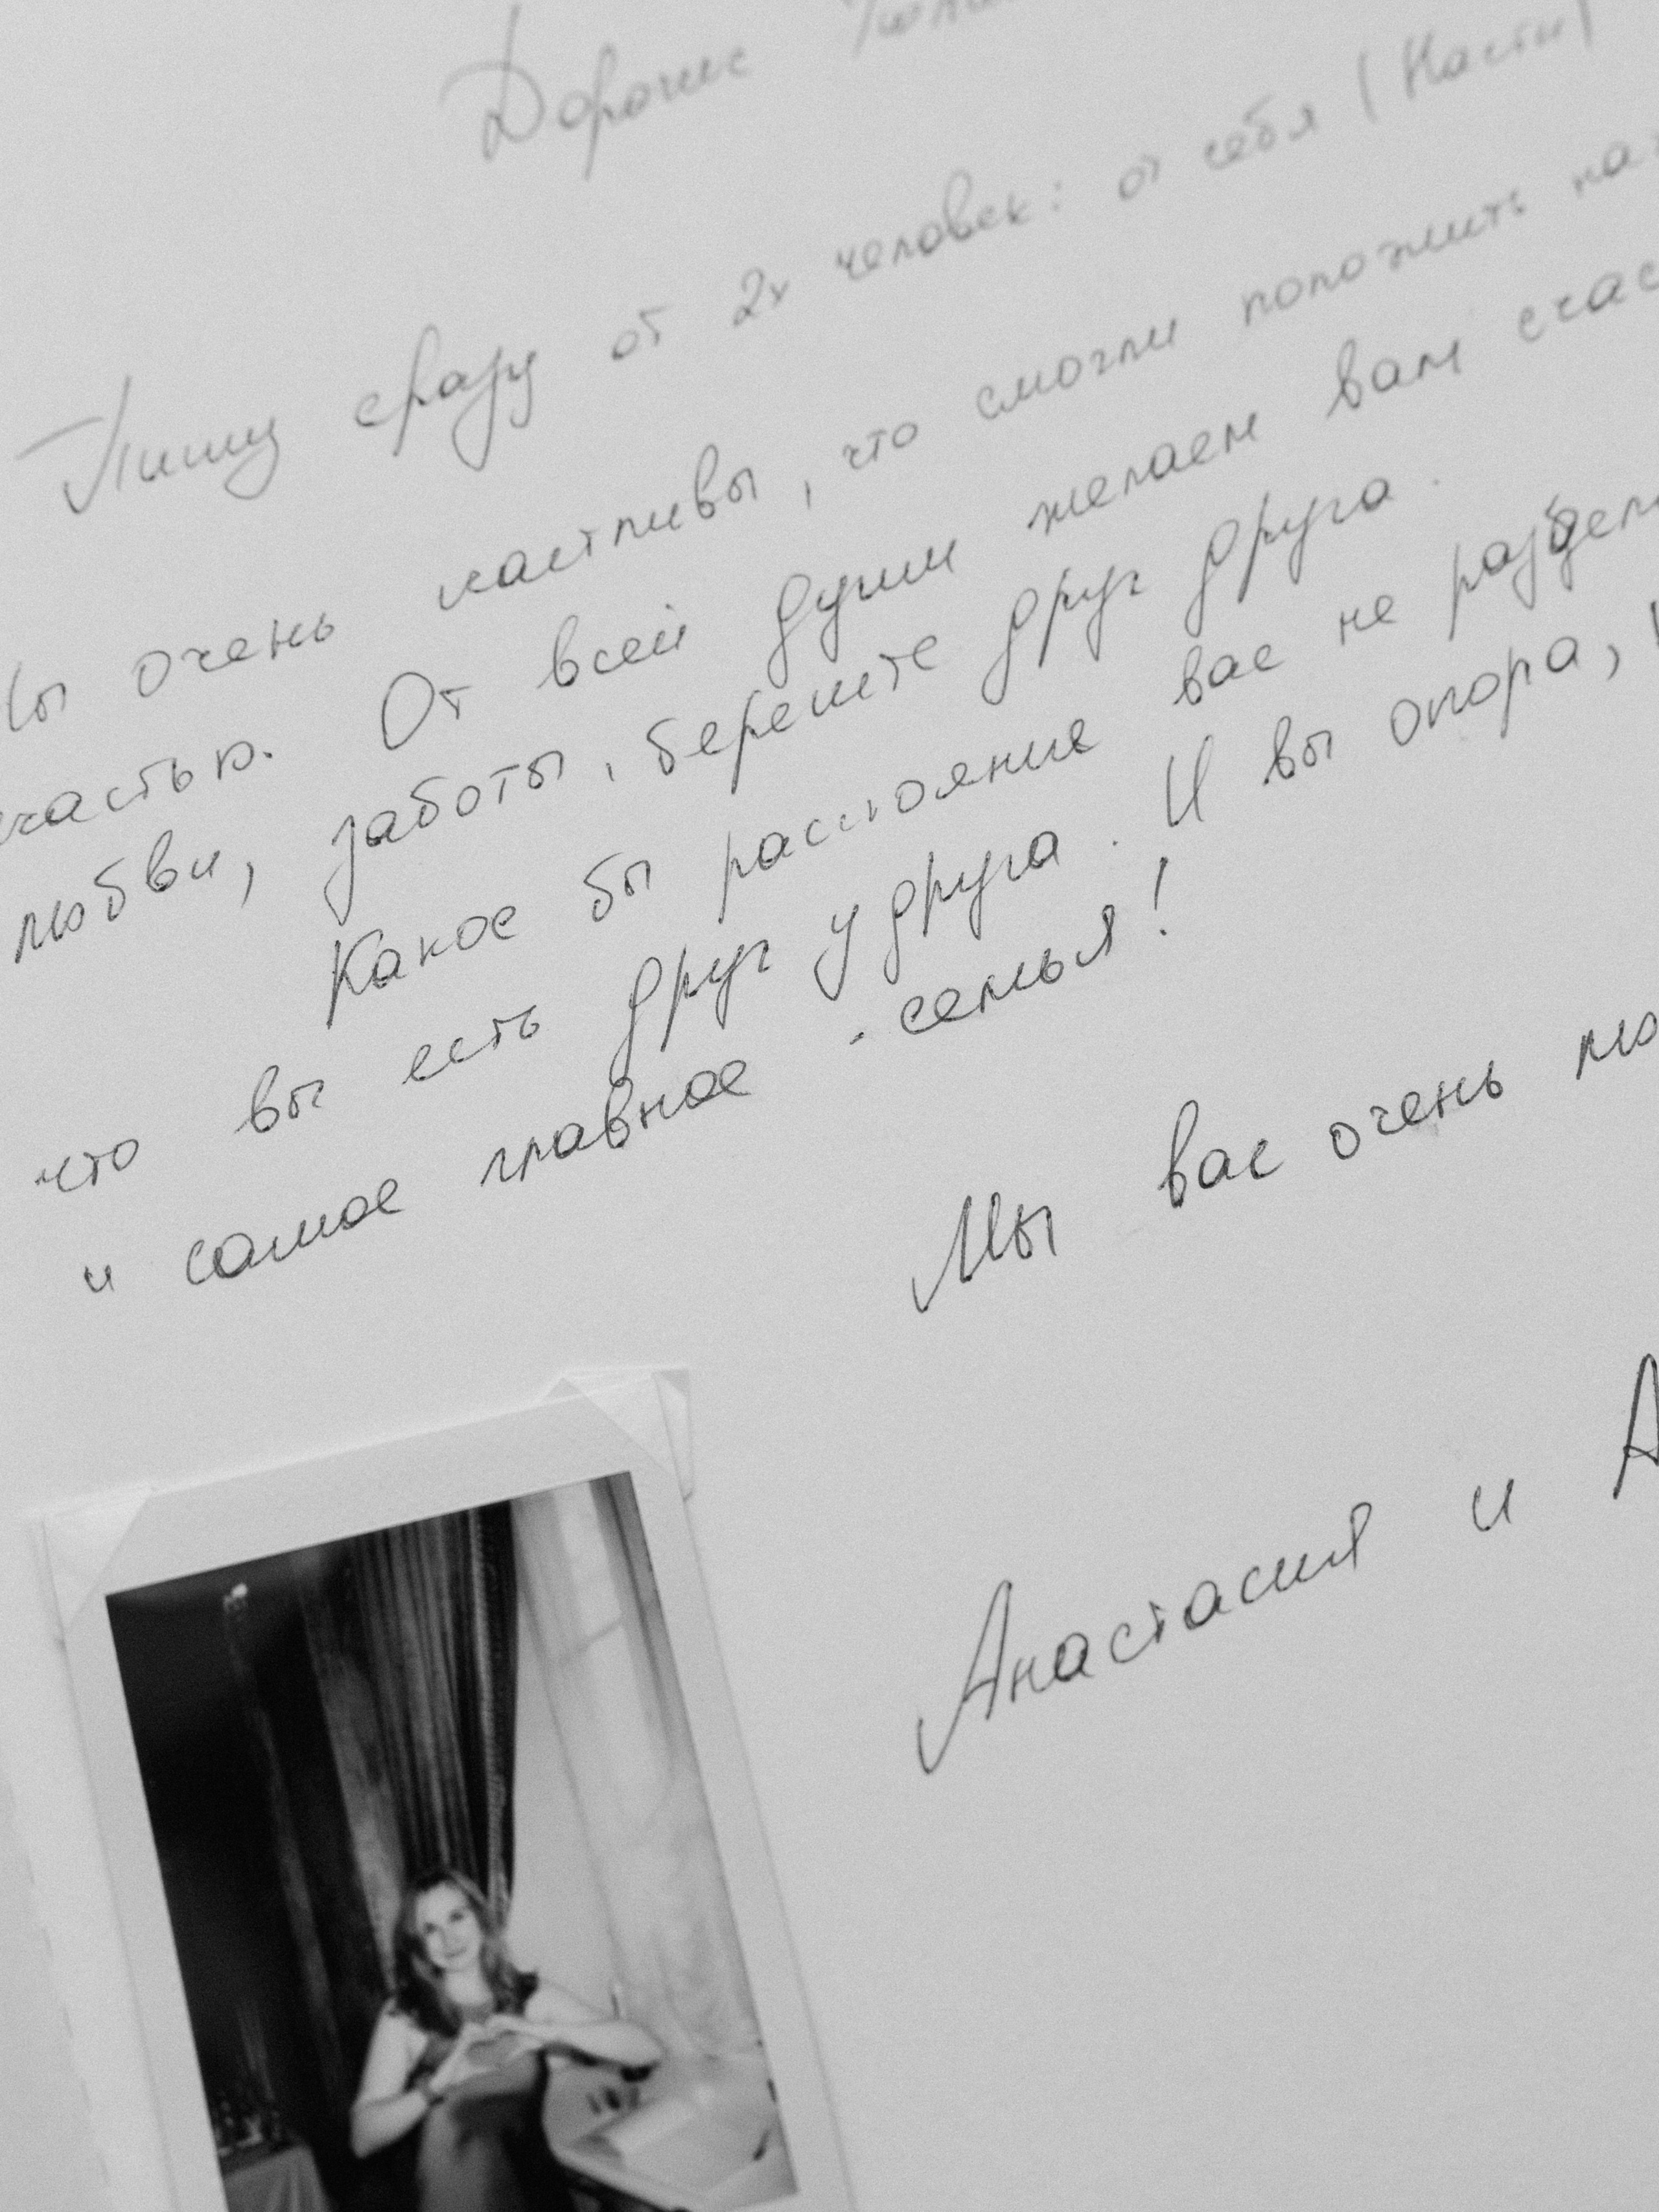 Дорогие
Пишу сразу от 2х человек: от себя (Насти)
очень счастливы, что смогли положить
счастью. От всей души желаем вам
любви, заботы, берегите друг друга.
Какое бы расстояние вас не
что вы есть друг у друга. И вы опора,
и самое главное - семья!
Мы вас очень
Анастасия и